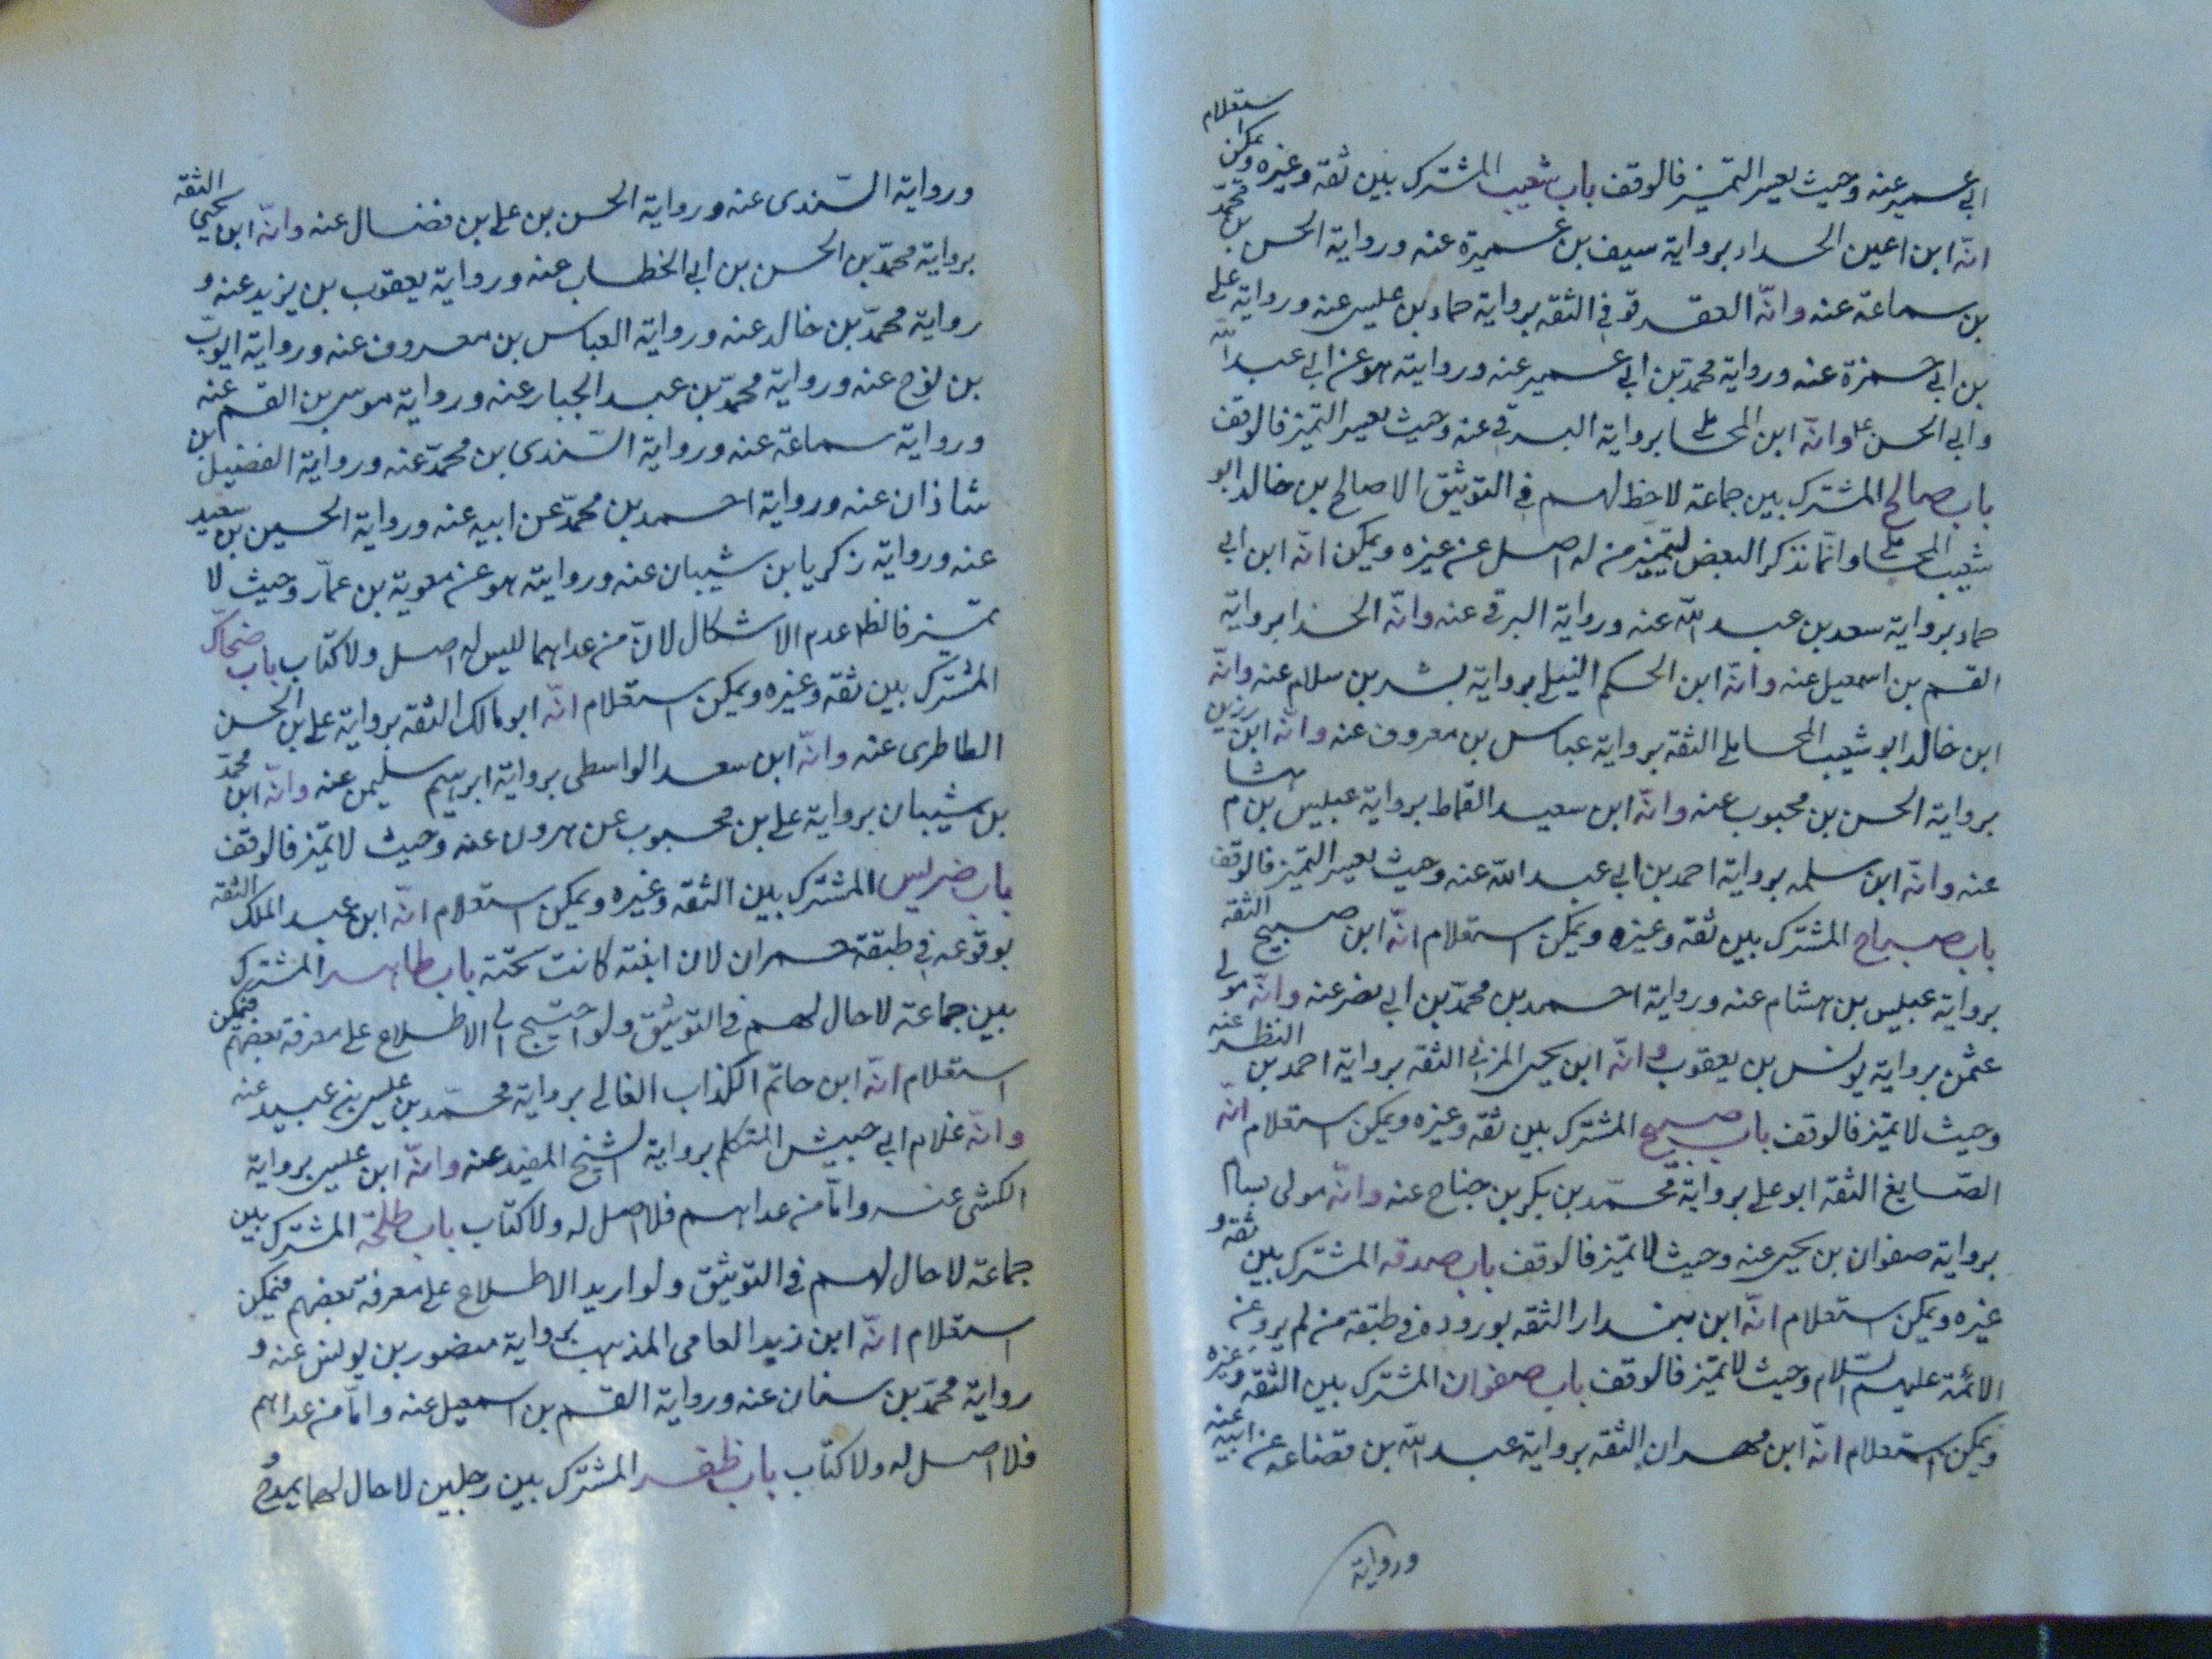 ابي عمير عنه وحيث يعسر التميز فالوقف باب شعيب المشترك بين ثقة وغيره ويمكن استعلام
انّه ابن اعين الحداد برواية سيف بن عميرة عنه ورواية الحسن بن محمّد
بن سماعة عنه وانّه العقرقوفي الثقه برواية حماد بن عيسى عنه ورواية على
بن ابي حمزة عنه ورواية محمد بن ابي عمير عنه وروايته هو عن ابي عبد الله
وابي الحسن ع وانّه ابن المحاملى برواية البرقي عنه وحيث يعسر التميز فالوقف
باب صالح المشترك بين جماعة لاحظ لهم في التوثيق الا صالح بن خالد ابو
شعيب المحاملى وانّما نذكر البعض ليتميّز من له اصل عن غيره ويمكن انّه ابن ابي
حماد برواية سعد بن عبد اللّه عنه ورواية البرقي عنه وانّه الحذا برواية
القسم بن اسمعيل عنه وانّه ابن الحكم النيلي برواية بشر بن سلام عنه وانّه
ابن خالد ابو شعيب المحاملي الثقة برواية عباس بن معروف عنه وانّه ابن رزين
برواية الحسن بن محبوب عنه وانّه ابن سعيد القماط برواية عبيس بن هشام
عنه وانّه ابن سلمه برواية احمد بن ابي عبد اللّه عنه وحيث يعسر التميّز فالوقف
باب صباح المشترك بين ثقة وغيره ويمكن استعلام انّه ابن صبيح الثقه
برواية عبيس بن هشام عنه ورواية احمد بن محمّد بن ابي نصر عنه وانّه مولى
عثمن برواية يونس بن يعقوب وانّه ابن يحيى المزني الثقة برواية احمد بن النظر عنه
وحيث لا تميّز فالوقف باب صبيح المشترك بين ثقة وغيره ويمكن استعلام انّه
الصّايغ الثقة ابو على برواية محمّد بن بكر بن جناح عنه وانّه مولى بسام
برواية صفوان بن يحيى عنه وحيث لا تميّز فالوقف باب صدقه المشترك بين ثقة و
غيره ويمكن استعلام انّه ابن بندار الثقه بوروده في طبقة من لم يرو عن
الائمّة عليهم السّلام وحيث لا تميّز فالوقف باب صفوان المشترك بين الثقة وغيره
ويمكن استعلام انّه ابن مهران الثقة برواية عبد اللّه بن قضاعه عن ابيه عنه
ورواية
ورواية السّندى عنه ورواية الحسن بن على بن فضال عنه وانّه ابن يحيى الثقه
برواية محمّد بن الحسن بن ابي الخطاب عنه ورواية يعقوب بن يزيد عنه و
رواية محمّد بن خالد عنه ورواية العباس بن معروف عنه ورواية ايوب
بن نوح عنه ورواية محمّد بن عبد الجبار عنه ورواية موسى بن القسم عنه
ورواية سماعة عنه ورواية السّندى بن محمّد عنه ورواية الفضيل بن
شاذان عنه ورواية احمد بن محمّد عن ابيه عنه ورواية الحسين بن سعيد
عنه ورواية زكريا بن شيبان عنه وروايته هو عن معوية بن عمّار وحيث لا
تميّز فالظ عدم الاشكال لانّ من عداهما ليس له اصل ولا كتاب باب ضحّاك
المشترك بين ثقة وغيره ويمكن استعلام انّه ابو مالك الثقة برواية على بن الحسن
الطاطرى عنه وانّه ابن سعد الواسطى برواية ابرهيم سليمن عنه وانّه ابن محمّد
بن شيبان برواية على بن محبوب عن هرون عنه وحيث لا تميّز فالوقف
باب ضريس المشترك بين الثقة وغيره ويمكن استعلام انّه ابن عبد الملك الثقة
بوقوعه في طبقة حمران لان ابنته كانت تحته باب طاهر المشترك
بين جماعة لا حال لهم في التوثيق ولو احتيج الى الاطلاع على معرفة بعضهم فيمكن
استعلام انّه ابن حاتم الكذاب الغالي برواية محمّد بن عيسى بن عبيد عنه
وانّه غلام ابي حبيش المتكلم برواية الشيخ المفيد عنه وانّه ابن عيسى برواية
الكشى عنه وامّا من عداهم فلا اصل له ولا كتاب باب طلحة المشترك بين
جماعة لا حال لهم في التوثيق ولو اريد الاطلاع على معرفة بعضهم فيمكن
استعلام انّه ابن زيد العامى المذهب برواية منصور بن يونس عنه و
رواية محمّد بن سنان عنه ورواية القسم بن اسمعيل عنه وامّا من عداهم
فلا اصل له ولا كتاب باب ظفر المشترك بين رجلين لا حال لهما